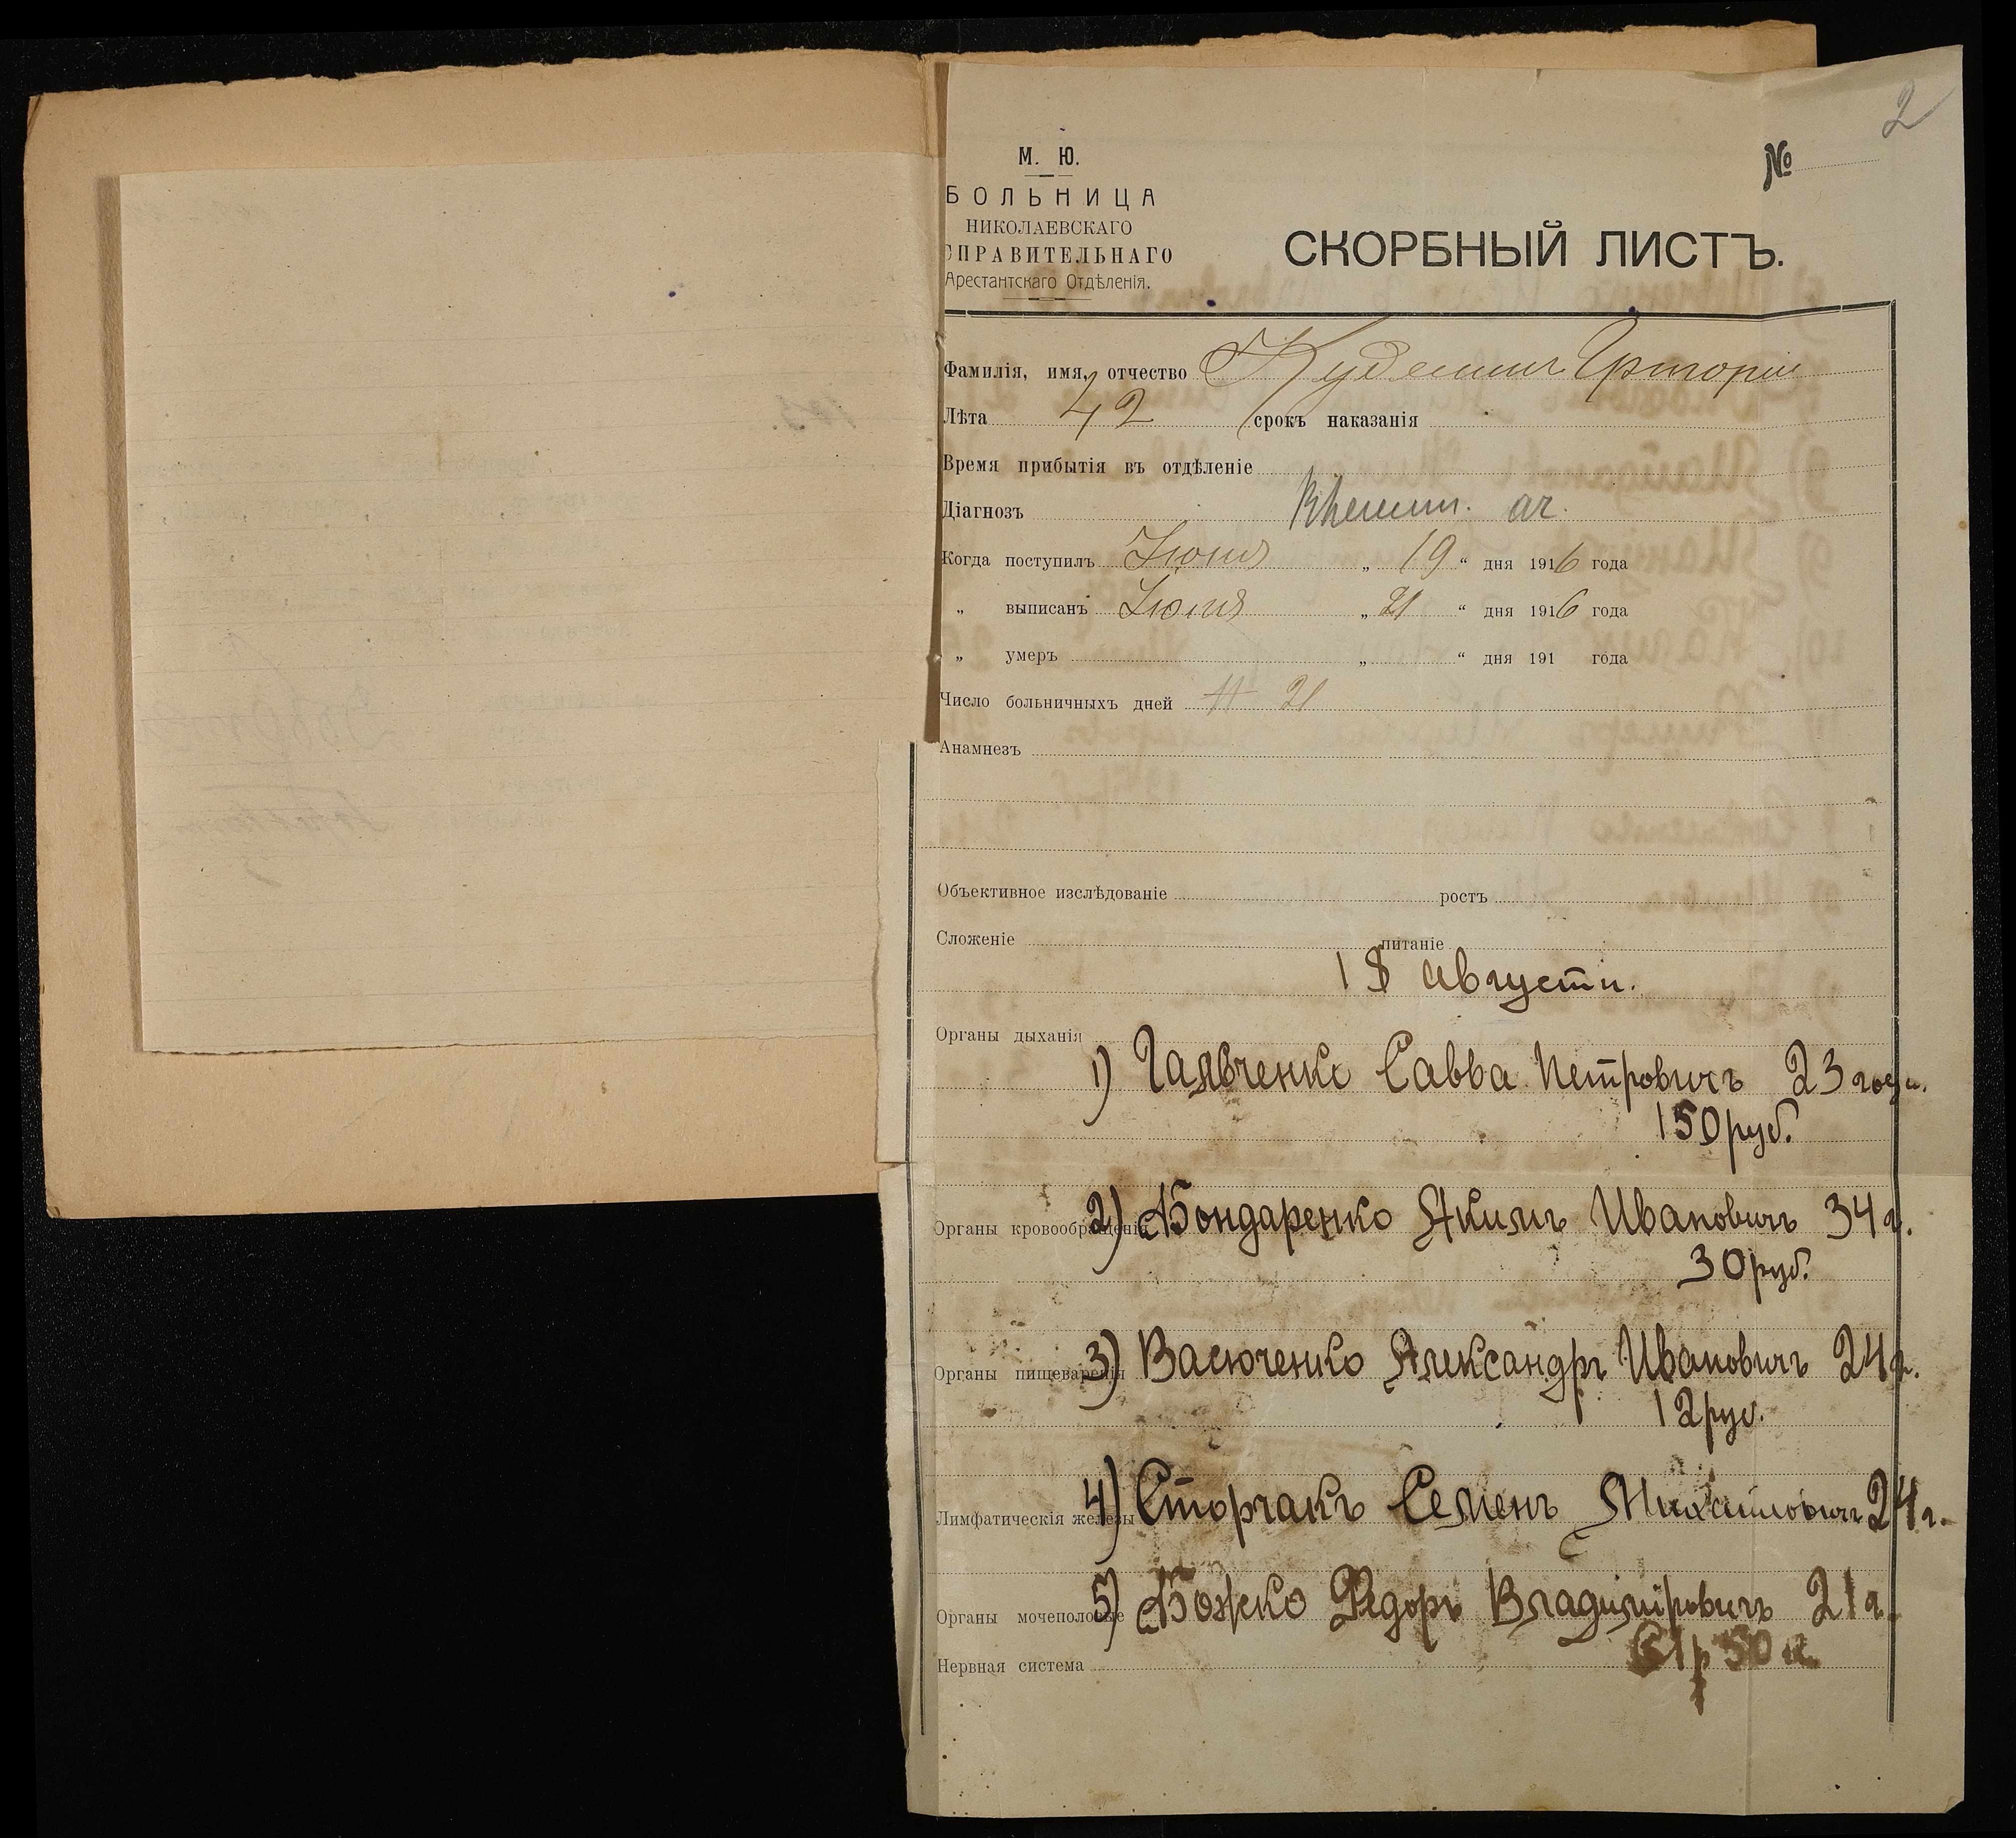 2
№
М. Ю.
БОЛЬНИЦА
НИКОЛАЕВСКАГО
ИСПРАВИТЕЛЬНАГО
Арестантскаго Отдѣленія.
СКОРБНЫЙ ЛИСТЪ.
Фамилія, имя, отчество Григорій
Лѣта 42 срокъ наказанія
Время прибытія въ отдѣленіе
Діагнозъ Rheum. ar.
Когда поступилъ Іюня „ 19 “ дня 1916 года
„ выписанъ Іюля „ 21 “ дня 1916 года
„ умеръ „ “ дня 191 года
Число больничныхъ дней 21
Анамнезъ
Объективное изслѣдованіе ростъ
Сложеніе питаніе
18 августа.
Органы дыханія
1) Галявченко Савва Петровичъ 23 года.
150 руб.
Органы кровообращенія
2) Бондаренко Якимъ Ивановичъ 34 г.
30 руб.
Органы пищеваренія
3) Васюченко Александръ Ивановичъ 24 г.
12 руб.
Лимфатическія железы
4) Сторчакъ Семенъ Михаиловичъ 24 г.
Органы мочеполовые
5) Божко Федоръ Владиміровичъ 21 г.
Нервная система